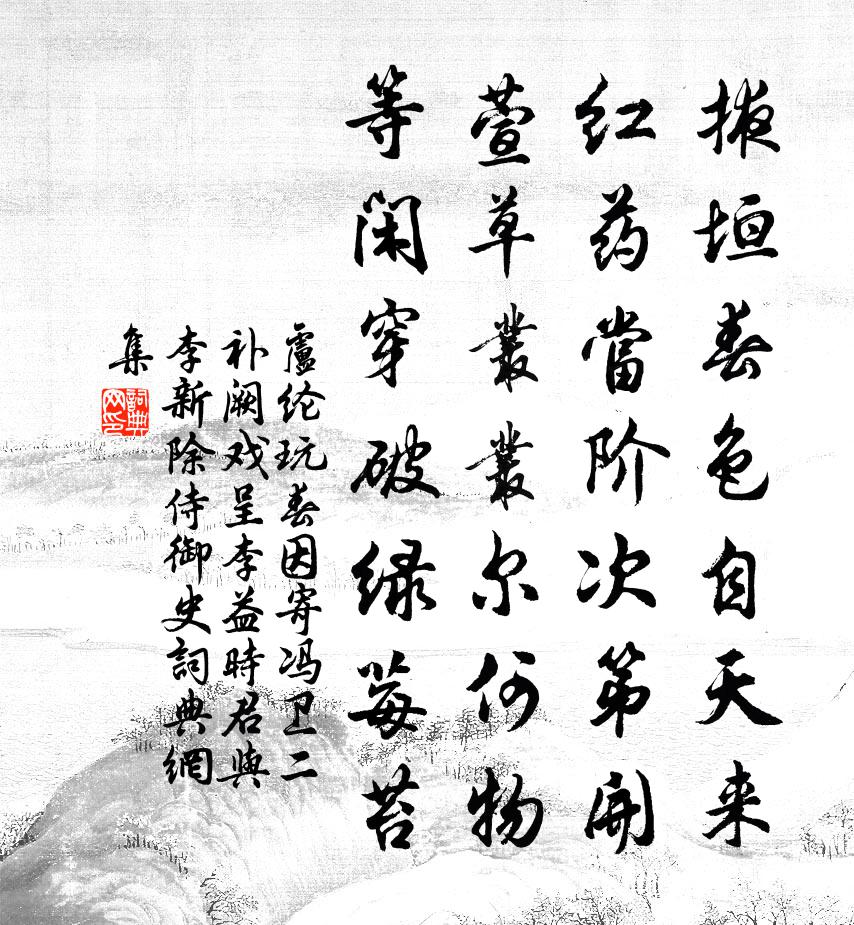 掖垣春色自天来
红药當阶次第開
萱草叢叢尔何物
等闲穿破绿莓苔
盧纶玩春因寄冯卫二
补阙戏呈李益時君與
李新除侍御史詞典網
集
詞典
网印